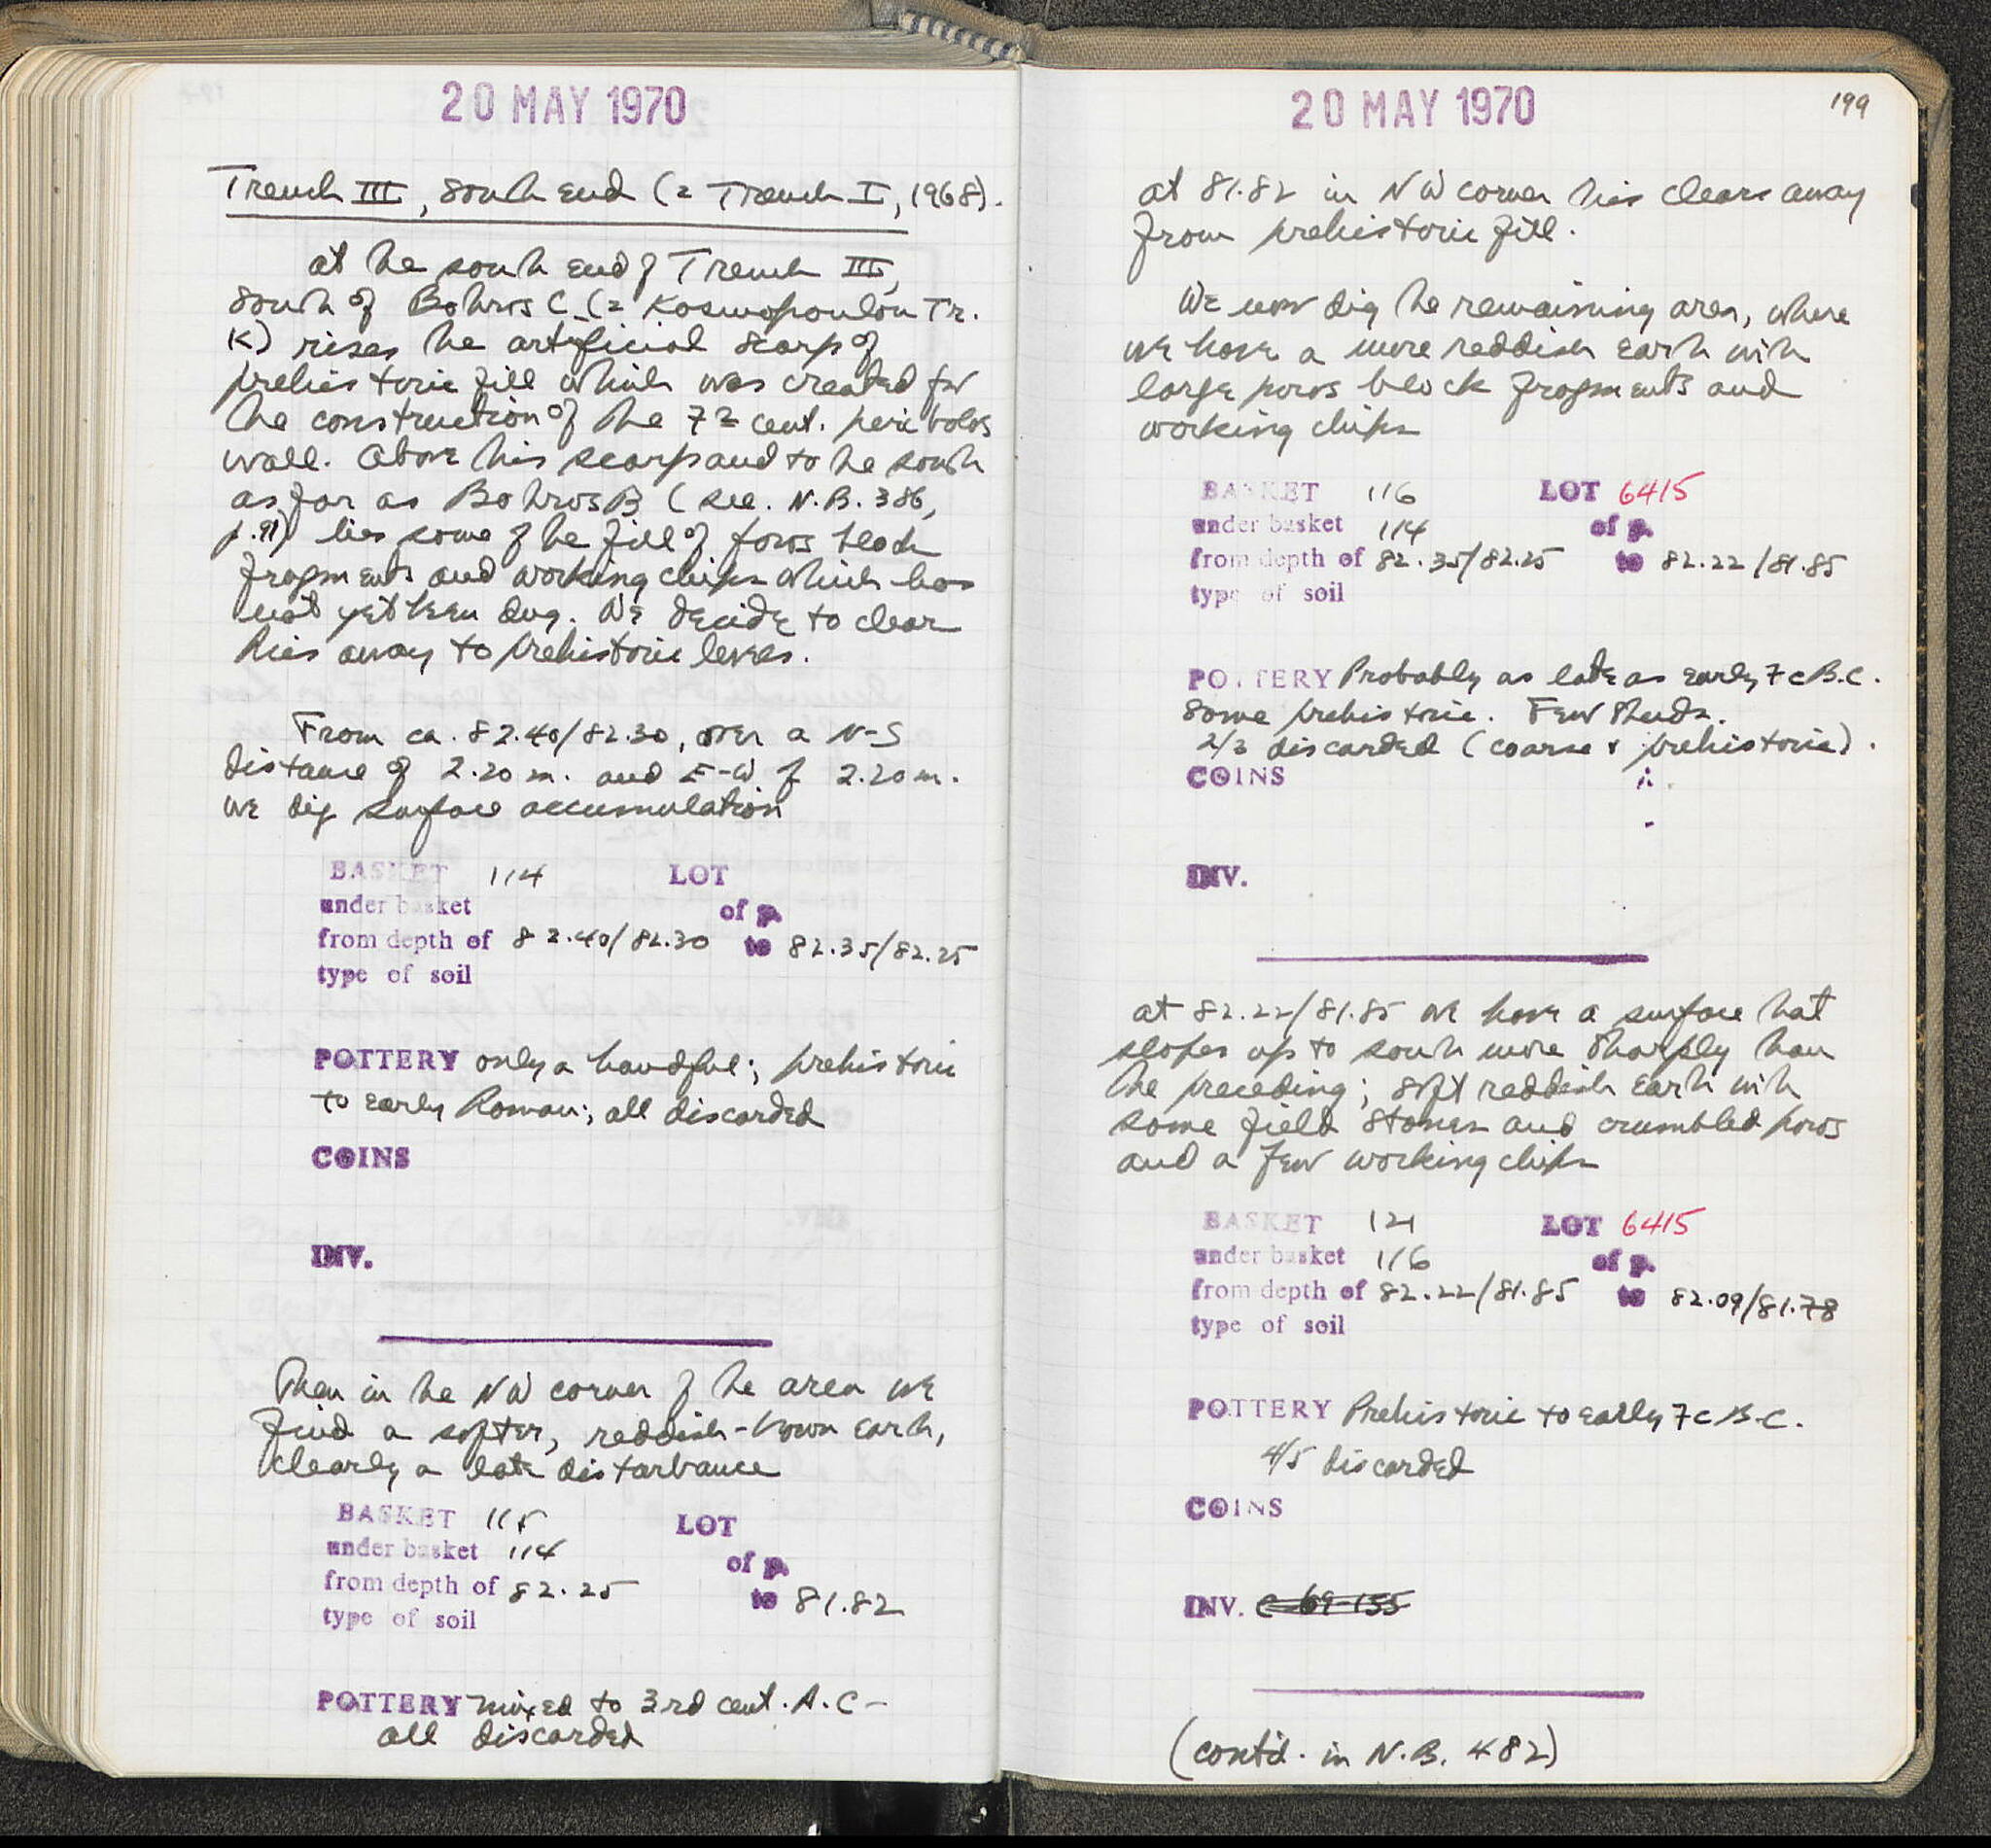 20 MAY 1970
Trench III, South End (= Trench I, 1968).
at the south end of Trench III,
South of Bothros C (= Kosmopoulou Tr.
K) rises the artificial scarp of
prehistoric fill which was created for
the construction of the 7th cent. peribolos
wall. Above this scarp and to the south
as far as Bothros B (see. N.B. 386,
p. 91) lies some of the fill of poros block
fragments and working chips which has
not yet been dug. We decide to clear
this away to prehistoric levels.
From ca. 82.40/82.30, over a N-S
distance of 2.20 m. and E-W of 2.20 m.
we dig surface accumulation
BASKET 114 LOT
under basket of p.
from depth of 82.40/82.30 to 82.35/82.25
type of soil
POTTERY only a handful; prehistoric
to early Roman; all discarded
COINS
INV.
Then in the NW corner of the area we
find a softer, reddish-brown earth,
clearly a late disturbance
BASKET 115 LOT
under basket 114 of p.
from depth of 82.25 to 81.82
type of soil
POTTERY mixed to 3rd cent. A.C-
all discarded
20 MAY 1970
199
at 81.82 in NW corner this clears away
from prehistoric fill.
We now dig the remaining area, where
we have a more reddish earth with
large poros block fragments and
working chips
BASKET 116 LOT 6415
under basket 114 of p.
from depth of 82.35/82.25 to 82.22/81.85
type of soil
POTTERY Probably as late as early 7 c B.C.
Some prehistoric. Few sherds.
2/3 discarded (coarse & prehistoric).
COINS
INV.
at 82.22/81.85 we have a surface that
slopes up to south more sharply than
the preceding; soft reddish earth with
some field stones and crumbled poros
and a few working chips
BASKET 121 LOT 6415
under basket 116 of p.
from depth of 82.22/81.85 to 82.09/81.78
type of soil
POTTERY Prehistoric to early 7 c B.C.
4/5 discarded
COINS
INV. C-69-155
(cont'd. in N.B. 482)